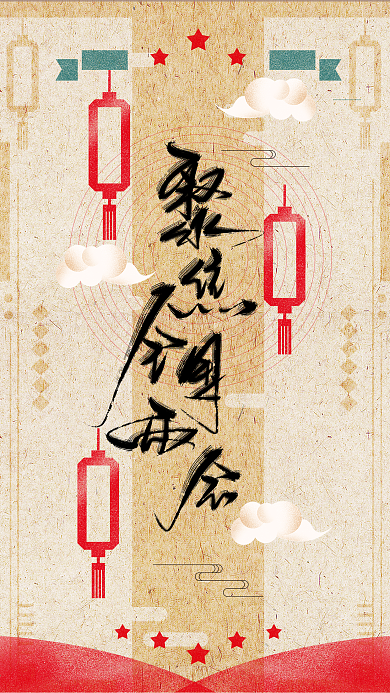 聚焦
全国
两会